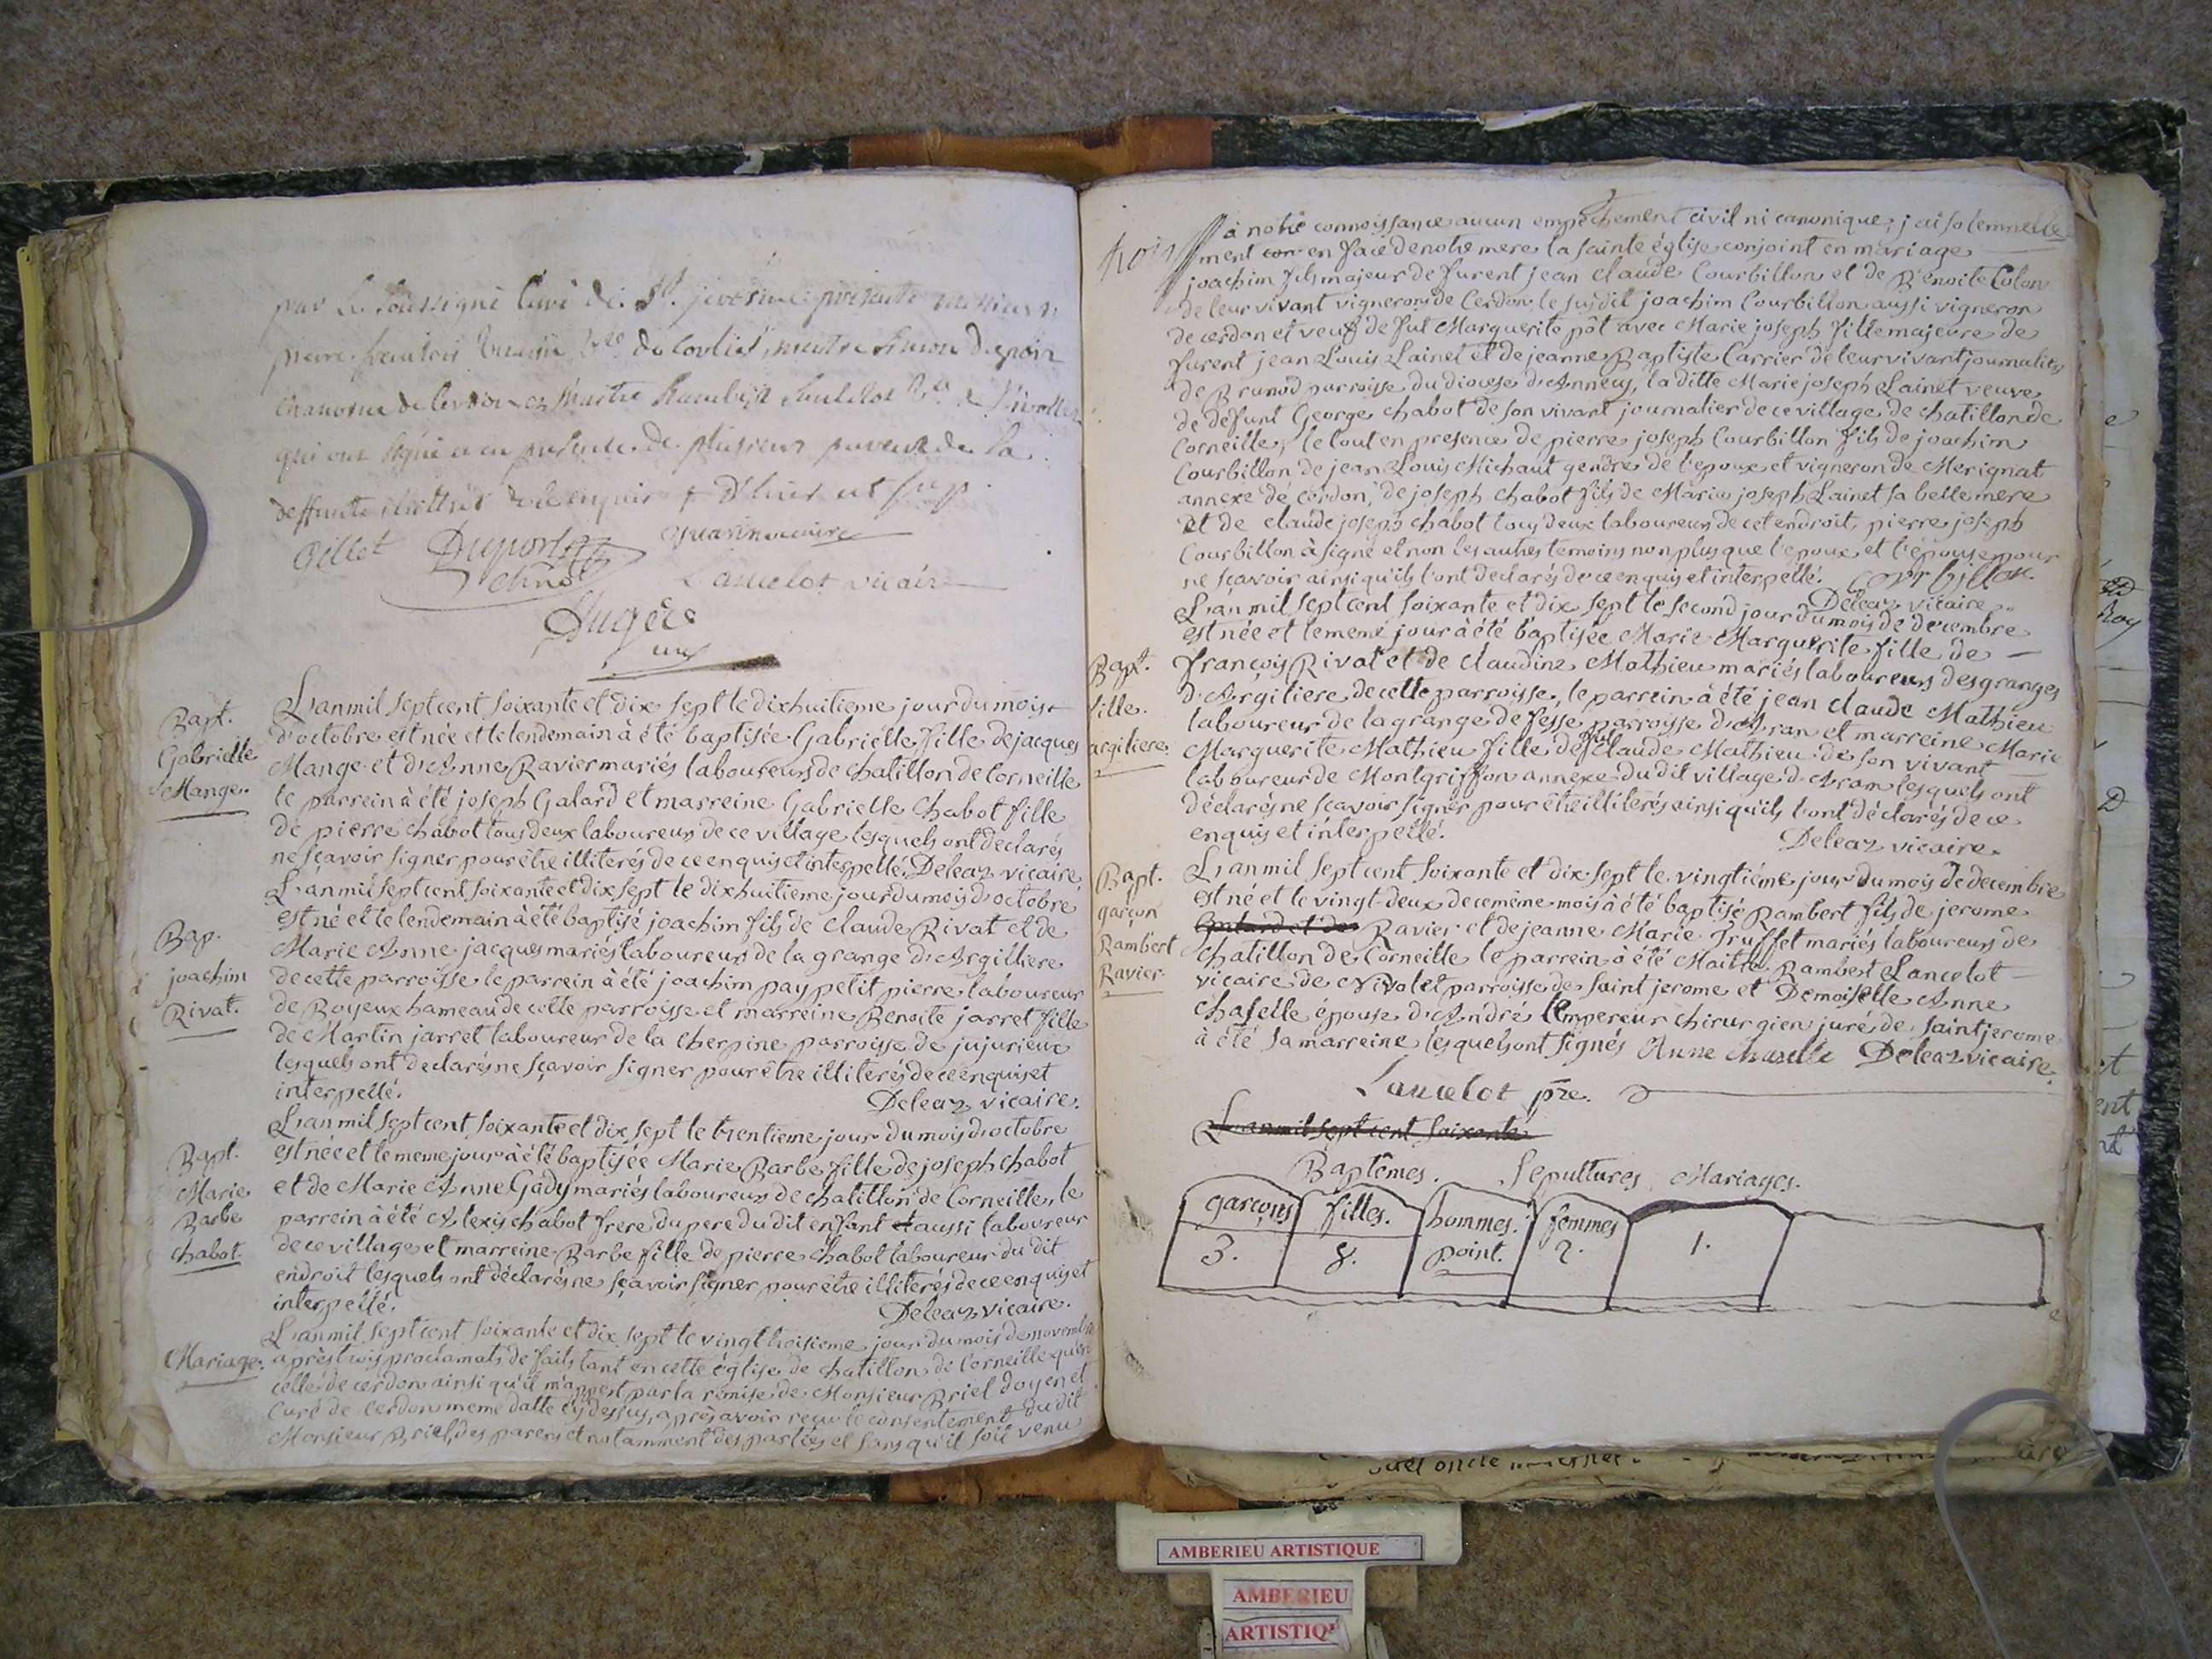 par le soussigné curé de St. jerosme presents messieurs
pierre vicaire de Corlier, maitre
chanoine de Cerdon et Maitre Rambert Lancelot
qui ont signé et en presence de plusieurs parents de la
deffunte illitérés de ce enquis
Gillet Duport
chan. Guarin vicaire
Lancelot vicaire
Augere
curé
Bapt.
Gabrielle
Mange.
L'an mil sept cent soixante et dix sept le dix huitieme jour du mois
d'octobre est née et le lendemain à été baptisée Gabrielle fille de jacques
Mange et d'Anne Ravier mariés laboureurs de Chatillon de Corneille
le parrein à été joseph Galard et marreine Gabrielle Chabot fille
de pierre Chabot tous deux laboureurs de ce village lesquels ont declarés
ne sçavoir signer pour être illiterés de ce enquis et interpellé. Deleaz vicaire
Bap.
joachim
Rivat.
L'an mil sept cent soixante et dix sept le dix huitieme jour du mois d'octobre
est né et le lendemain à été baptisé joachim fils de Claude Rivat et de
Marie Anne jacques mariés laboureurs de la grange d'Argilliere
de cette parroisse le parrein à été joachim pay petit pierre laboureur
de Boyeux hameau de cette parroisse et marreine Benoite jarret fille
de Martin jarret laboureur de la Cherpine parroisse de jujurieux
lesquels ont declarés ne sçavoir signer pour être illiterés de ce enquis et
interpellé. Deleaz vicaire.
Bapt.
Marie
Barbe
Chabot.
L'an mil sept cent soixante et dix sept le trentieme jour du mois d'octobre
est née et le meme jour à été baptisée Marie Barbe fille de joseph Chabot
et de Marie Anne Gady mariés laboureurs de Chatillon de Corneille, le
parrein à été Alexis Chabot frere du pere du dit enfant et aussi laboureur
de ce village et marreine Barbe fille de pierre Chabot laboureur du dit
endroit lesquels ont déclarés ne sçavoir signer pour être illiterés de ce enquis et
interpellé. Deleaz vicaire.
Mariage.
L'an mil sept cent soixante et dix sept le vingt troisieme jour du mois de novembre
après trois proclamats de faits tant en cette église de Chatillon de Corneille qu'en
celle de cerdon ainsi qu'il m'appert par la remise de Monsieur Briel doyen et
curé de cerdon meme datte cy dessus, après avoir reçu le consentement du dit
Monsieur Briel, des parens et notamment des parties et sans qu'il soit venu
trois
à notre connoissance aucun empechement civil ni canonique, j'ai solemnelle
ment con en face de notre mere la sainte église conjoint en mariage
joachim fils majeur de furent jean Claude Courbillon et de Benoite Colon
de leur vivant vignerons de Cerdon, le susdit joachim Courbillon aussi vigneron
de cerdon et veuf de fut Marguerite pôt avec Marie joseph fille majeure de
furent jean Louis Lainet et de jeanne Baptiste Carrier de leur vivant journaliers
de Brunod parroisse du diocese d'Annecy, la ditte Marie joseph Lainet veuve
de defunt George Chabot de son vivant journalier de ce village de chatillon de
Corneille, le tout en presence de pierre joseph Courbillon fils de joachim
Courbillon de jean Louis Michaut gendre de l'epoux et vigneron de Merignat
annexe de cerdon, de joseph Chabot fils de Marie joseph Lainet sa belle mere
et de claude joseph Chabot tous deux laboureurs de cet endroit, pierre joseph
Courbillon à signé et non les autres temoins non plus que l'epoux et l'épouse pour
ne sçavoir ainsi qu'ils l'ont declarés de ce enquis et interpellé. Courbillon.
Deleaz vicaire.
Bapt.
fille.
argiliere.
L'an mil sept cent soixante et dix sept le second jour du mois de decembre
est née et le meme jour à été baptisée Marie Marguerite fille de
françois Rivat et de claudine Mathieu mariés laboureurs des granges
d'Argiliere de cette parroisse, le parrein à été jean claude Mathieu
laboureur de la grange de fesse parroisse d'Aran et marreine Marie
Marguerite Mathieu fille de fut Claude Mathieu de son vivant
laboureur de Montgriffon annexe du dit village d'Aran lesquels ont
déclarés ne sçavoir signer pour être illitérés ainsi qu'ils l'ont déclarés de ce
enquis et interpellé. Deleaz vicaire.
Bapt.
garçon
Rambert
Ravier.
L'an mil sept cent soixante et dix sept le vingtiéme jour du mois de decembre
est né et le vingt-deux de ce meme mois à été baptisé Rambert fils de jerome
Ravier et de jeanne Marie Truffet mariés laboureurs de
Chatillon de Corneille le parrein à été Maitre Rambert Lancelot
vicaire de Nivolet parroisse de saint jerome et Demoiselle Anne
Chaselle épouse d'André l'empereur chirurgien juré de saint jerome
à été sa marreine lesquels ont signés Anne Chaselle Deleaz vicaire.
Lancelot pre.
L'an mil sept cent soixante
Baptêmes. Sepultures Mariages.
garçons filles. hommes. femmes
3. 8. point. 2. 1.
AMBERIEU ARTISTIQUE
AMBERIEU
ARTISTIQ